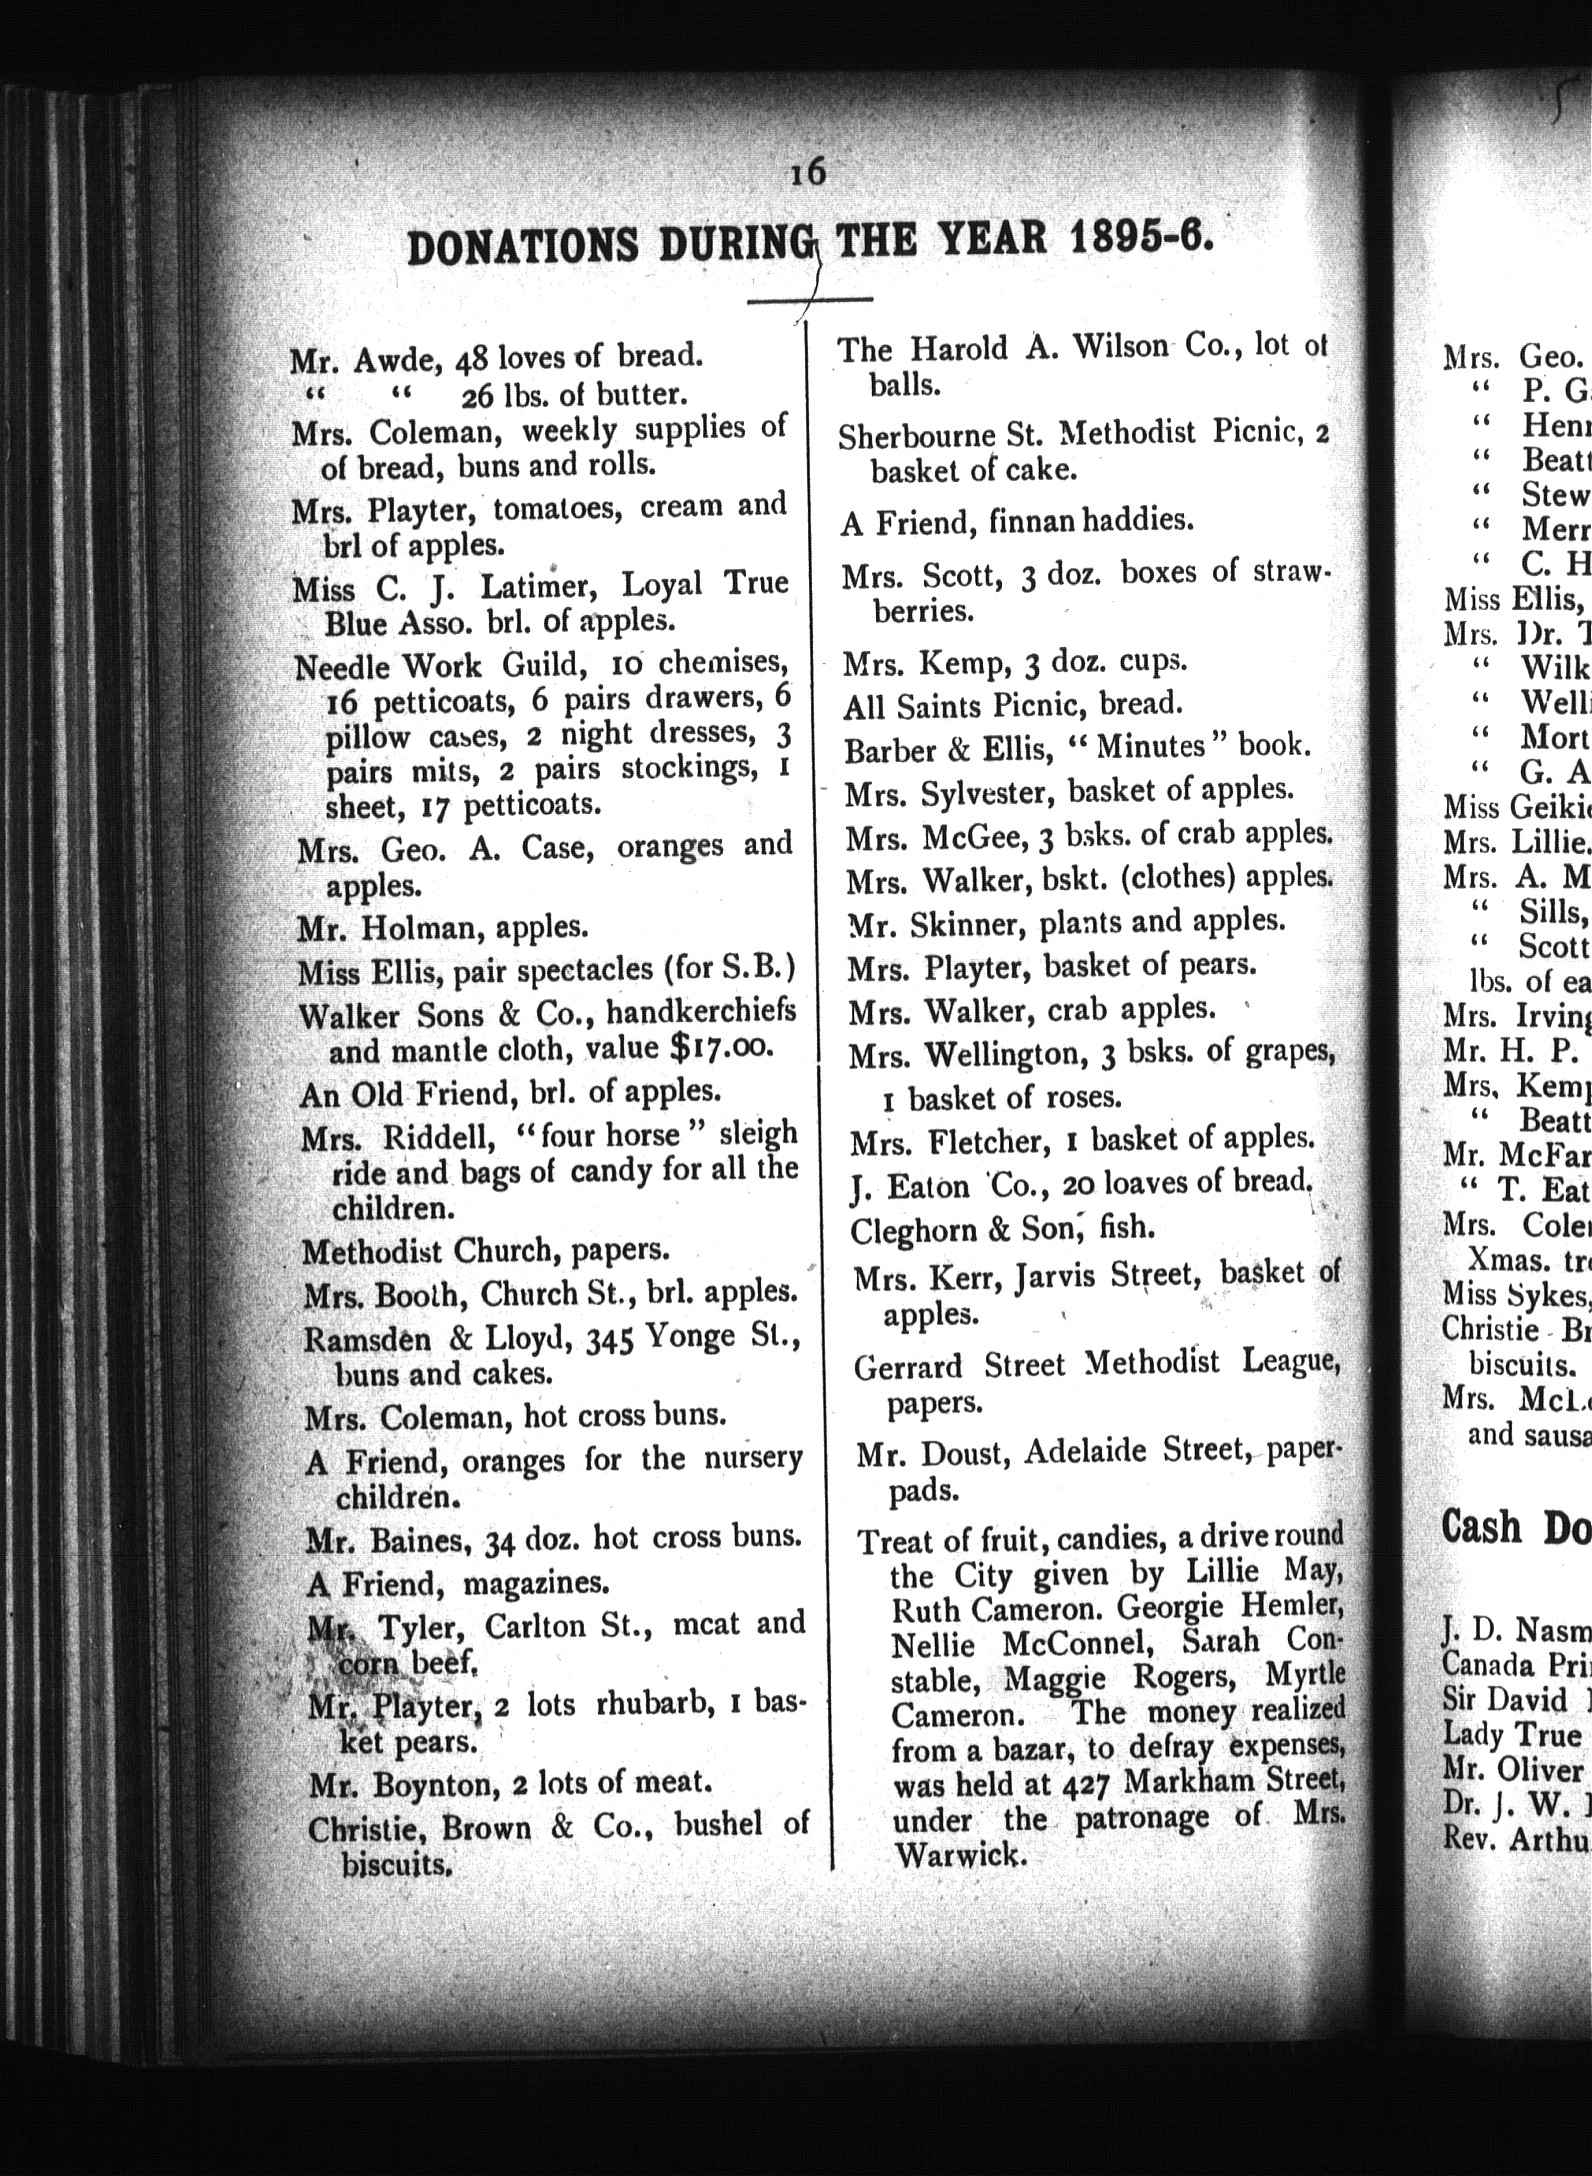 16
DONATIONS DURING THE YEAR 1895-6.
Mr. Awde, 48 loves of bread.
“ “ 26 lbs. of butter.
Mrs. Coleman, weekly supplies of
of bread, buns and rolls.
Mrs. Playter, tomatoes, cream and
brl of apples.
Miss C. J. Latimer, Loyal True
Blue Asso. brl. of apples.
Needle Work Guild, 10 chemises,
16 petticoats, 6 pairs drawers, 6
pillow cases, 2 night dresses, 3
pairs mits, 2 pairs stockings, 1
sheet, 17 petticoats.
Mrs. Geo. A. Case, oranges and
apples.
Mr. Holman, apples.
Miss Ellis, pair spectacles (for S.B.)
Walker Sons & Co., handkerchiefs
and mantle cloth, value $17.00.
An Old Friend, brl. of apples.
Mrs. Riddell, “four horse” sleigh
ride and bags of candy for all the
children.
Methodist Church, papers.
Mrs. Booth, Church St., brl. apples.
Ramsden & Lloyd, 345 Yonge St.,
buns and cakes.
Mrs. Coleman, hot cross buns.
A Friend, oranges for the nursery
children.
Mr. Baines, 34 doz. hot cross buns.
A Friend, magazines.
Mr. Tyler, Carlton St., meat and
corn beef.
Mr. Playter, 2 lots rhubarb, 1 bas-
ket pears.
Mr. Boynton, 2 lots of meat.
Christie, Brown & Co., bushel of
biscuits.
The Harold A. Wilson Co., lot of
balls.
Sherbourne St. Methodist Picnic, 2
basket of cake.
A Friend, finnan haddies.
Mrs. Scott, 3 doz. boxes of straw-
berries.
Mrs. Kemp, 3 doz. cups.
All Saints Picnic, bread.
Barber & Ellis, “Minutes” book.
Mrs. Sylvester, basket of apples.
Mrs. McGee, 3 bsks. of crab apples.
Mrs. Walker, bskt. (clothes) apples.
Mr. Skinner, plants and apples.
Mrs. Playter, basket of pears.
Mrs. Walker, crab apples.
Mrs. Wellington, 3 bsks. of grapes,
1 basket of roses.
Mrs. Fletcher, 1 basket of apples.
J. Eaton Co., 20 loaves of bread.
Cleghorn & Son, fish.
Mrs. Kerr, Jarvis Street, basket of
apples.
Gerrard Street Methodist League,
papers.
Mr. Doust, Adelaide Street, paper-
pads.
Treat of fruit, candies, a drive round
the City given by Lillie May,
Ruth Cameron. Georgie Hemler,
Nellie McConnel, Sarah Con-
stable, Maggie Rogers, Myrtle
Cameron. The money realized
from a bazar, to defray expenses,
was held at 427 Markham Street,
under the patronage of Mrs.
Warwick.
Mrs. Geo.
“ P. G
“
“
“
“
“ C. H
Miss Ellis,
Mrs. Dr.
“
“
“
“ G. A
Miss
Mrs. Lillie.
Mrs. A. M
“ Sills,
“ Scott
lbs. of
Mrs.
Mr. H. P.
Mrs,
“
Mr.
“ T.
Mrs.
Xmas.
Miss Sykes,
Christie
biscuits.
Mrs.
and
Cash
J. D.
Canada
Sir David
Lady True
Mr. Oliver
Dr. J. W.
Rev.